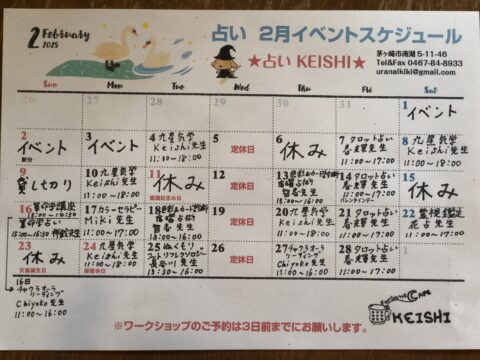 2 February
2025
占い 2月イベントスケジュール
★占い KEISHI★
茅ヶ崎市南湖 5-11-46
Tel&Fax 0467-84-8933
uranaikiki@gmail.com
Sun Mon Tue Wed Thu Fri Sat
26 27 28 29 30 31
1 イベント
2 イベント
節分
3 イベント
4 九星気学
Keishi先生
11:00~18:00
5 定休日
6 休み
7 タロット占い
春来響先生
11:00~17:00
8 九星気学
Keishi先生
11:00~18:00
9 貸し切り
10 九星気学
Keishi先生
11:00~18:00
11 休み
建国記念の日
12 定休日
13
宿曜占い
智春先生
14 タロット占い
春来響先生
11:00~17:00
バレンタインデー
15 休み
16 算命学講座
算命学占い
17 カラーセラピー
Miki先生
11:00~17:00
18
宿曜占い
智春先生
19 定休日
20 九星気学
Keishi先生
11:00~18:00
21 タロット占い
春来響先生
11:00~17:00
22 霊視鑑定
花占先生
11:00~17:00
23 休み
天皇誕生日
24 九星気学
Keishi先生
11:00~18:00
振替休日
25 ぬくもり
リフレクソロジー
長谷川先生
26 定休日
27 チャクラオーラ
リーディング
Chiyoko先生
11:00~16:00
28 タロット占い
春来響先生
11:00~17:00
16日
チャクラオーラ
リーディング
Chiyoko先生
11:00~16:00
CAFE
KEISHI
※ワークショップのご予約は3日前までにお願いします。